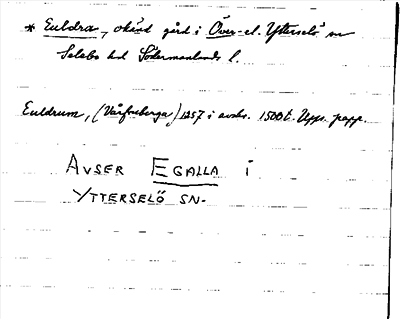 * Euldra, okänd gård i Över- el. Ytterselö sn
Selebo hd Södermanlands l.
Euldrum, (Vårfruberga) 1257 i avskr. 1500t. Upps. papp.
AVSER EGALLA i
YTTERSELÖ SN-